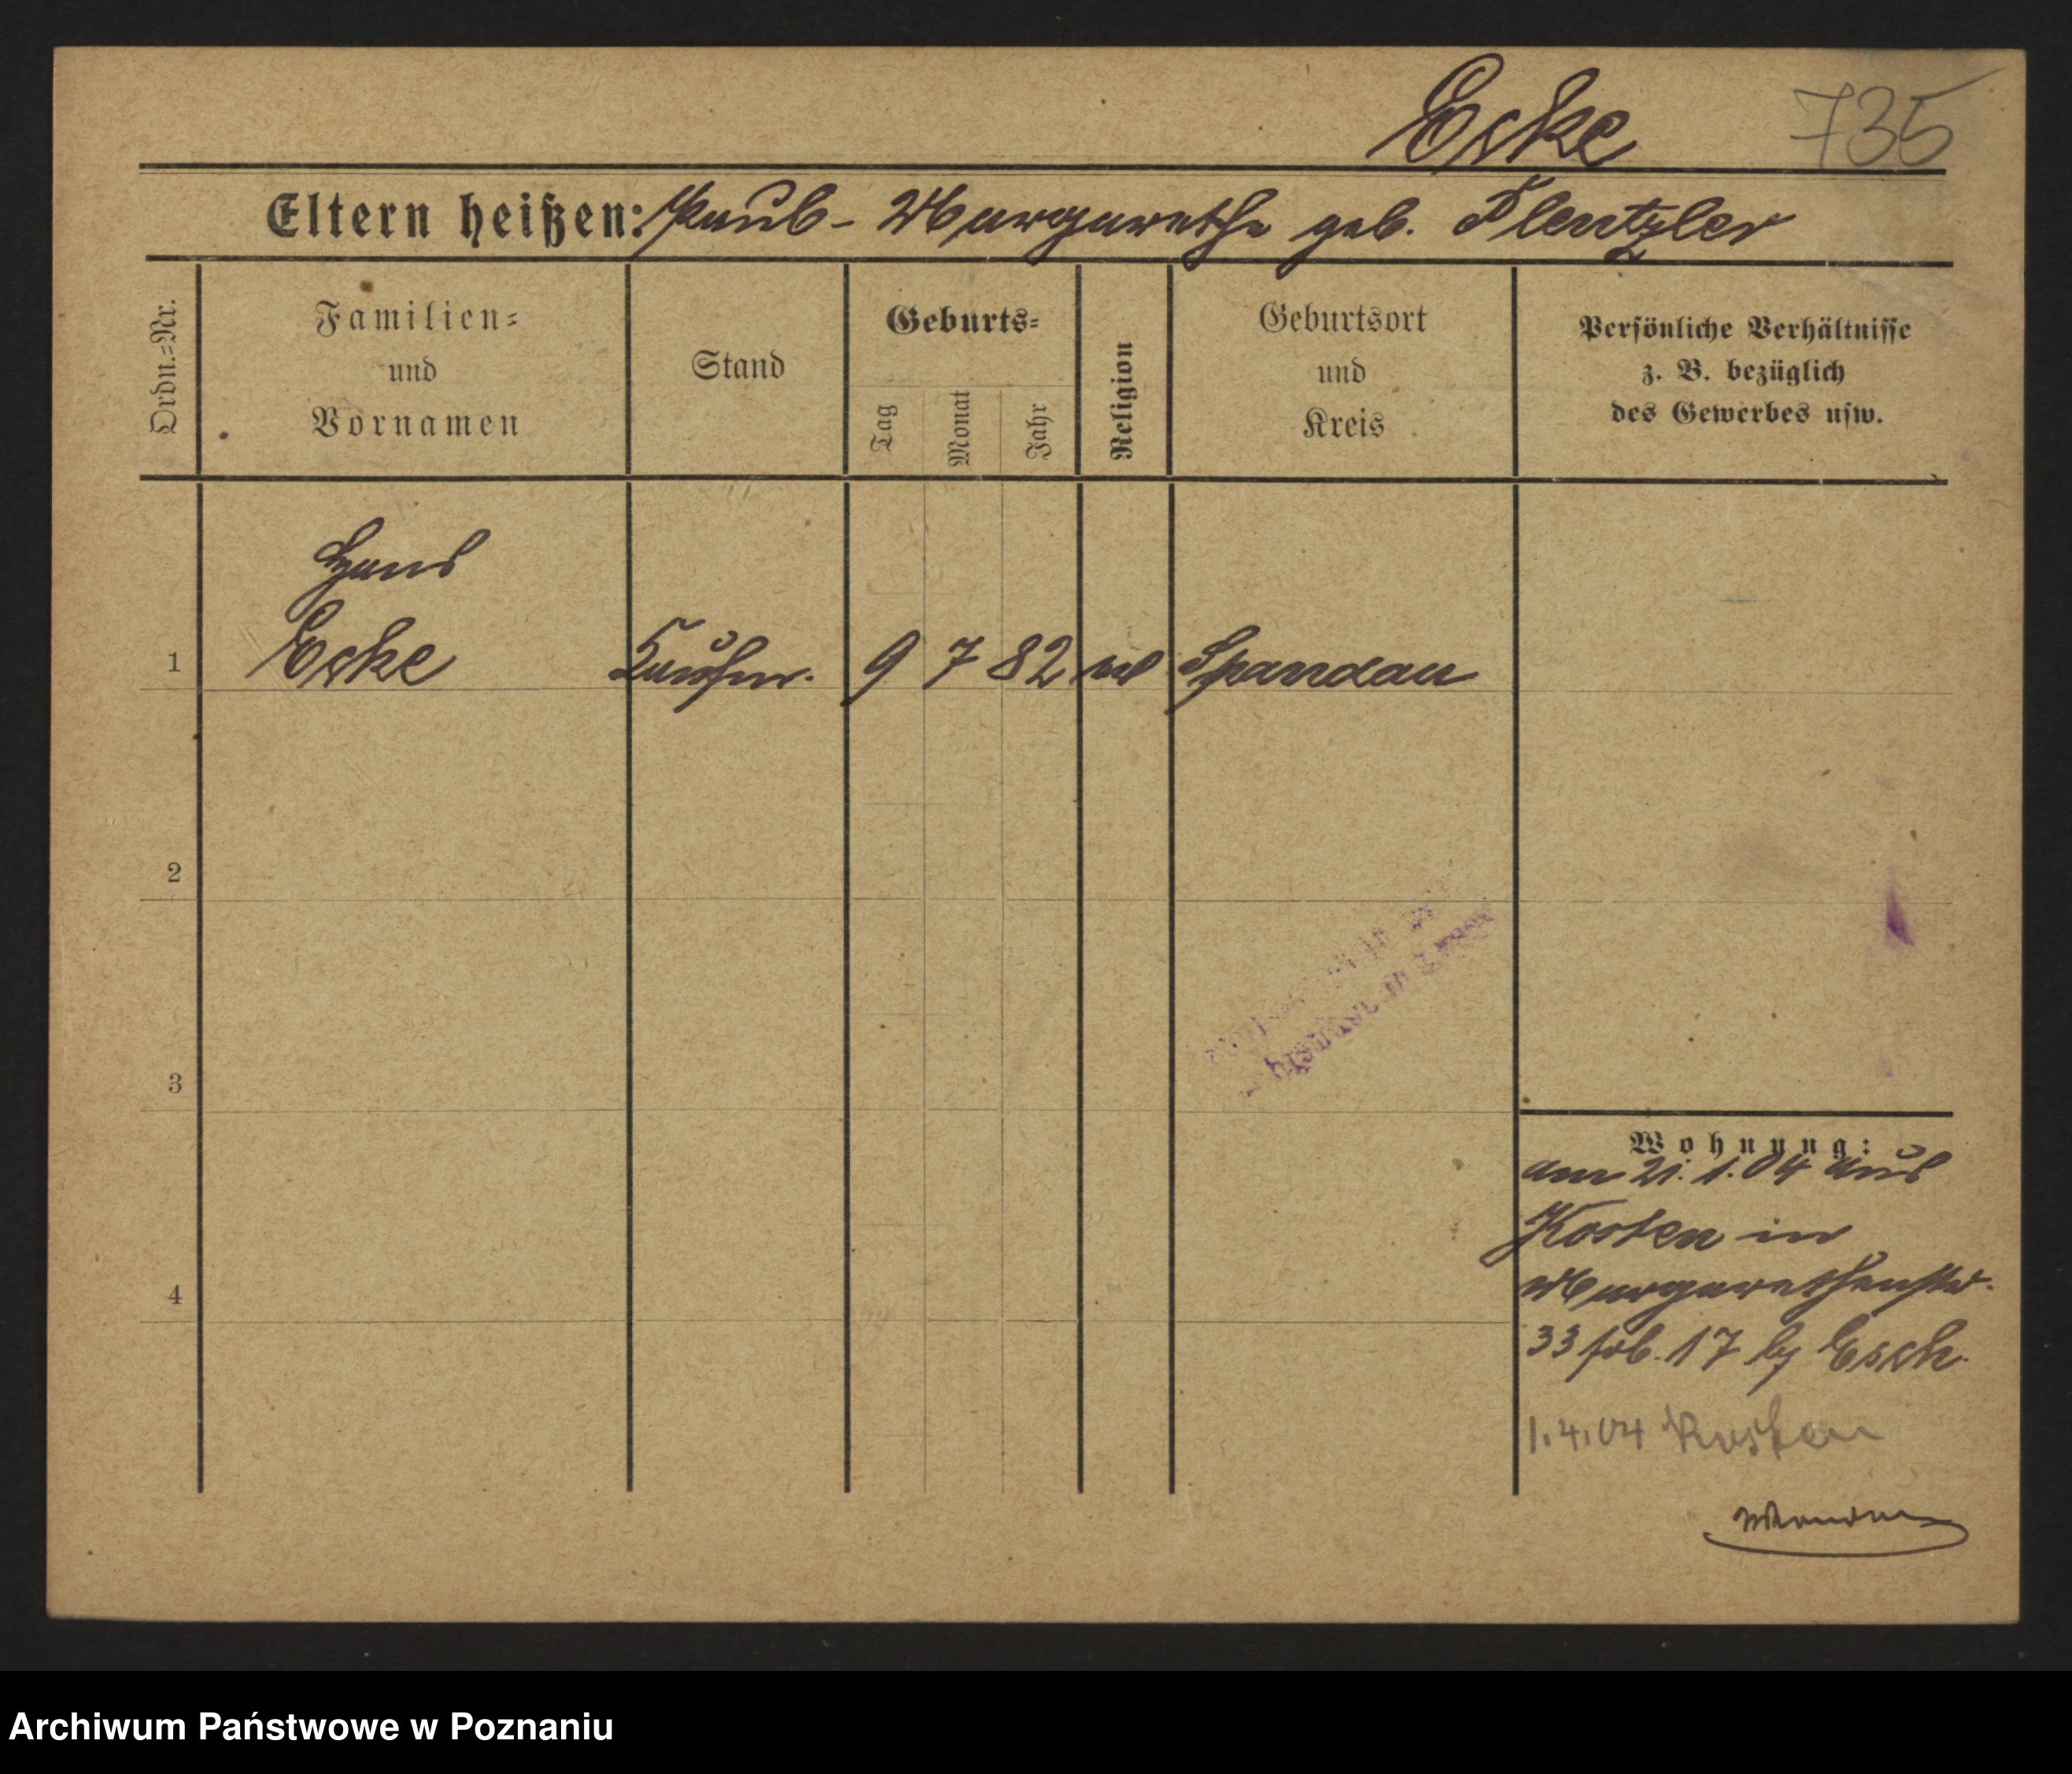 Ecke 735
Eltern heißen: Paul - Margarethe geb. Plentzler
Ordn.=Nr.
Familien=
und
Vornamen
Stand
Geburts=
Tag
Monat
Jahr
Religion
Geburtsort
und
Kreis
Persönliche Verhältnisse
z. B. bezüglich
des Gewerbes usw.
Hans
1 Ecke Kaufm. 9 7 82 Spandau
2
3
4
Wohnung:
am 21.1.04 aus
Kosten in
Margarethenstr.
33 17 Esch.
1.4.04 Kosten
Archiwum Państwowe w Poznaniu